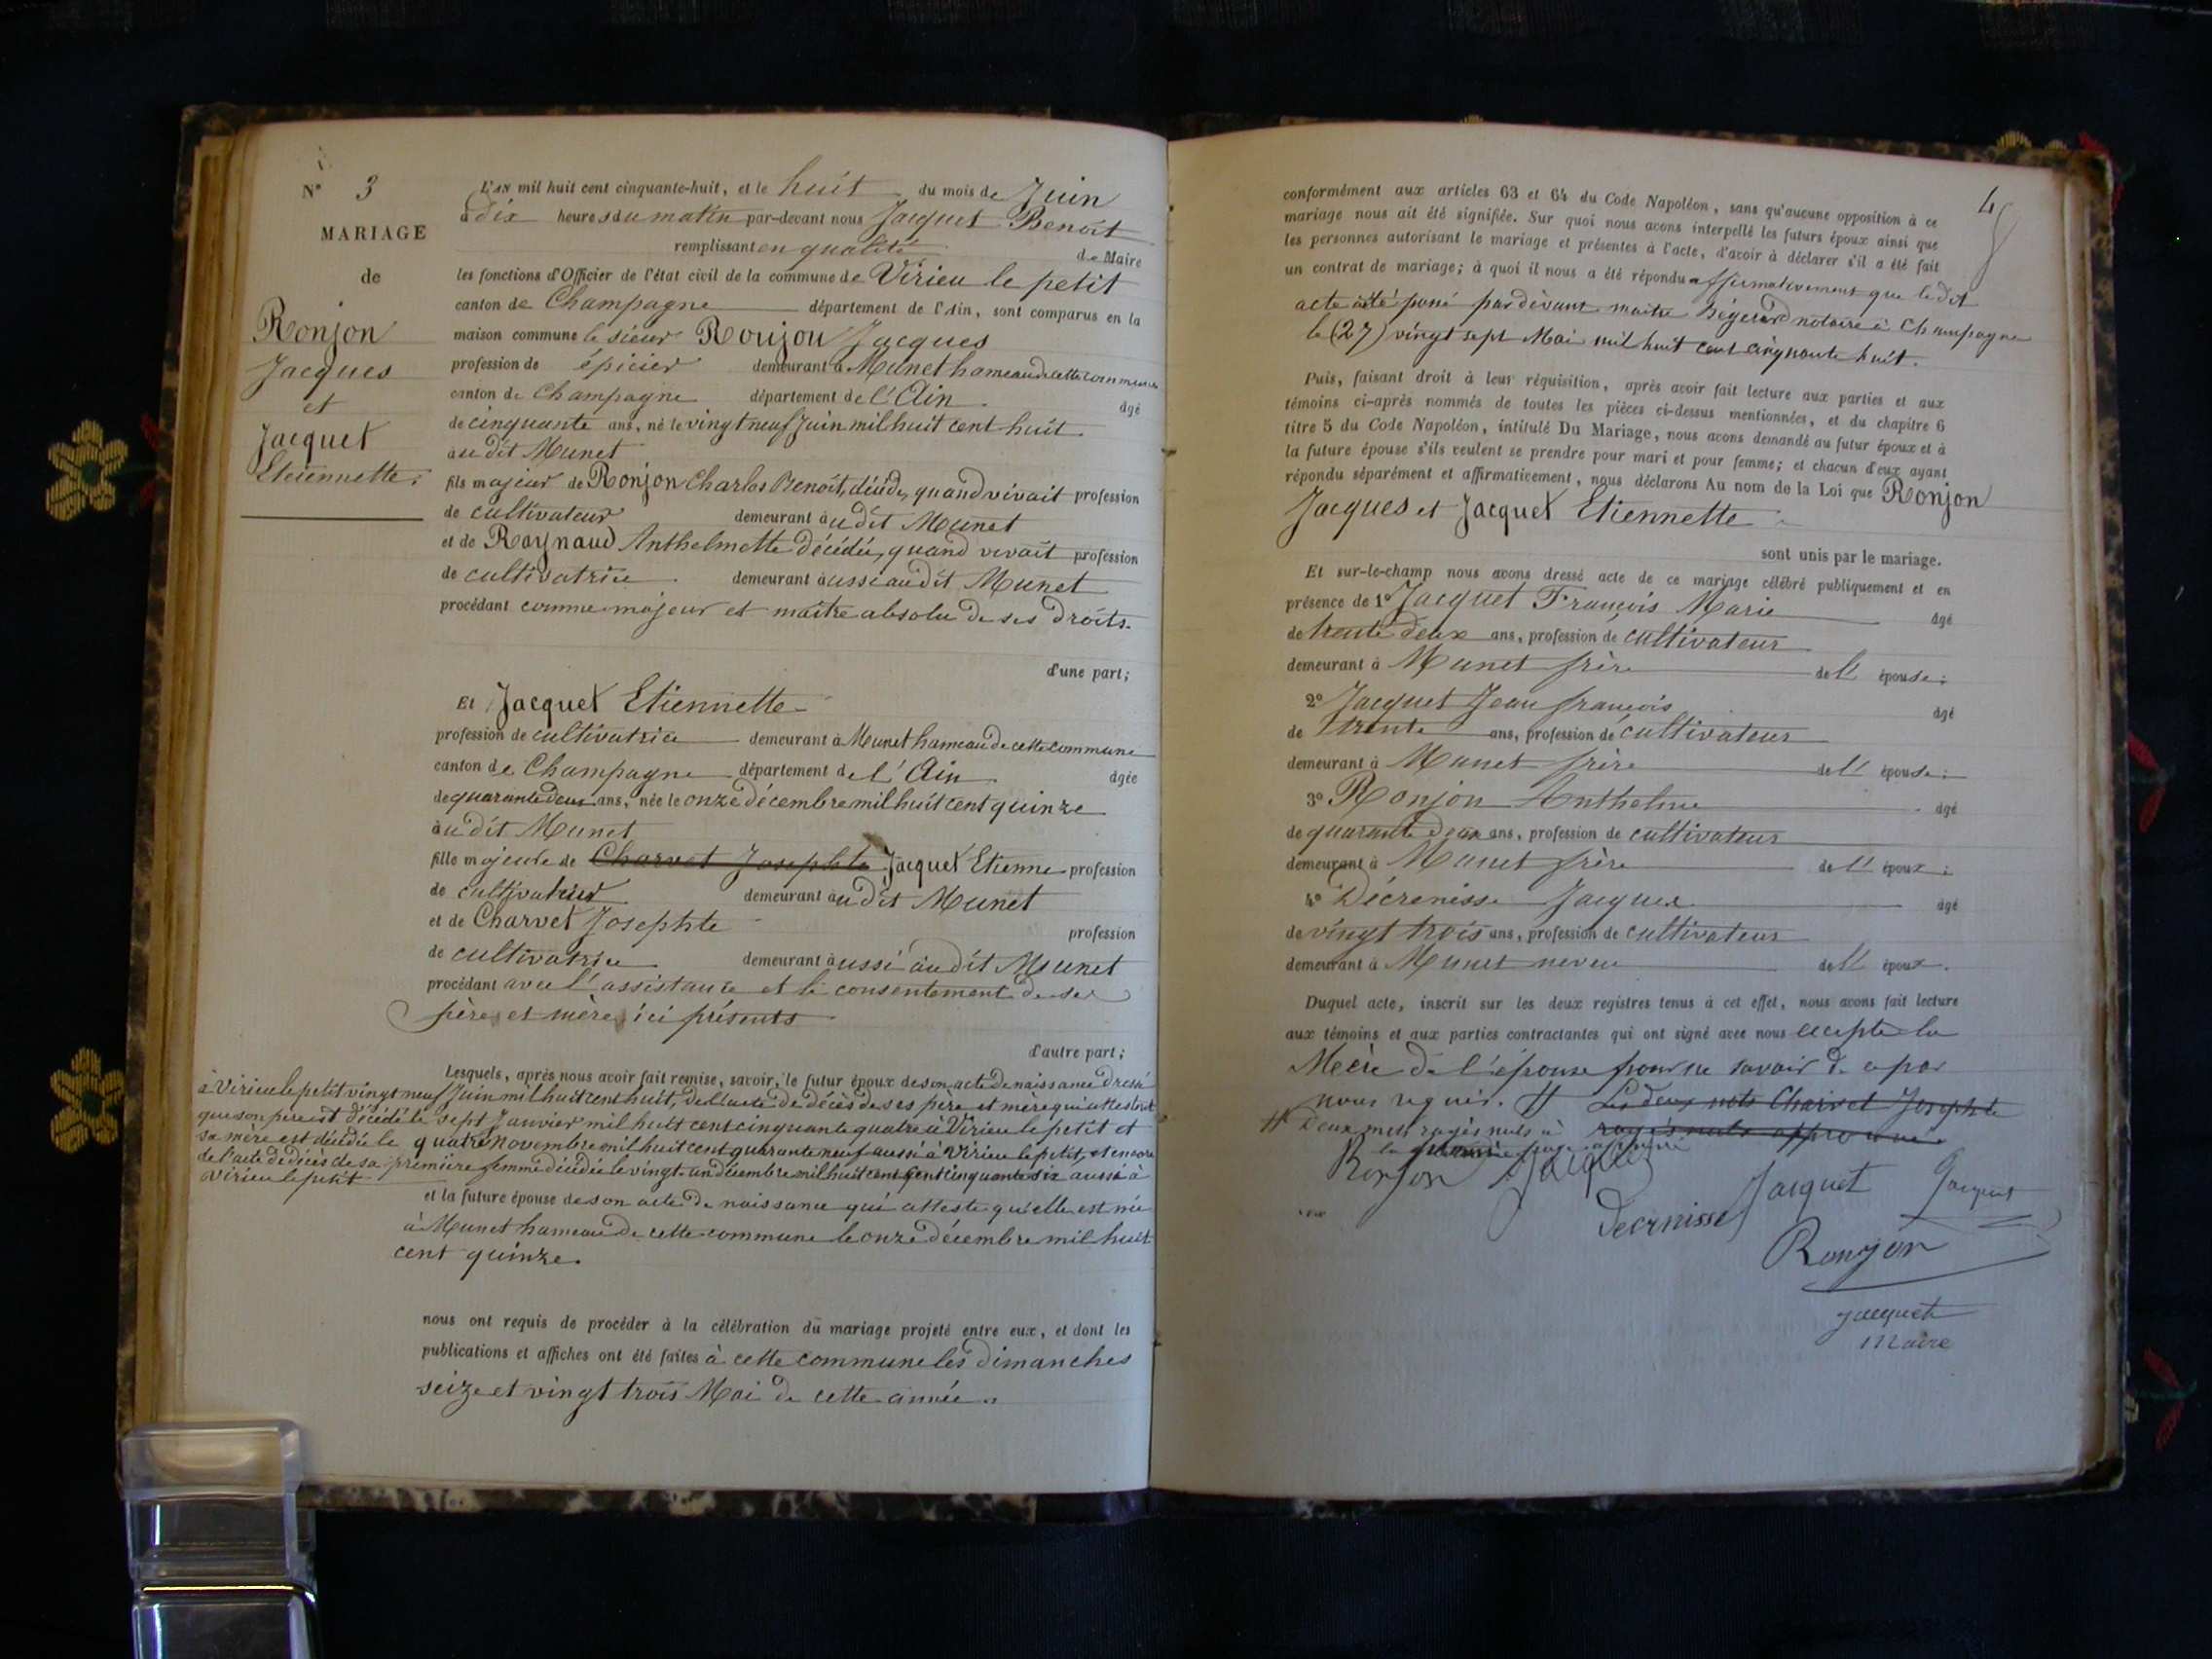 N° 3
MARIAGE
de
Ronjon
Jacques
et
Jacquet
Etiennette.
L'AN mil huit cent cinquante-huit, et le huit du mois de Juin
à dix heures du matin par-devant nous Jacquet Benoît
remplissant en qualité de Maire
les fonctions d'Officier de l'état civil de la commune de Virieu le petit
canton de Champagne département de l'Ain, sont comparus en la
maison commune le sieur Ronjon Jacques
profession de épicier demeurant à Munet hameau de cette commune
canton de Champagne département de l'Ain âgé
de cinquante ans, né le vingt neuf Juin mil huit cent huit
au dit Munet
fils majeur de Ronjon Charles Benoît, décédé, quand vivait profession
de cultivateur demeurant au dit Munet
et de Raynaud Anthelmette décédée, quand vivait profession
de cultivatrice demeurant aussi au dit Munet
procédant comme majeur et maître absolu de ses droits.
d'une part;
Et Jacquet Etiennette
profession de cultivatrice demeurant à Munet hameau de cette commune
canton de Champagne département de l'Ain âgée
de quarante deux ans, née le onze décembre mil huit cent quinze
au dit Munet
fille majeure de Charvet Josephte Jacquet Etienne profession
de cultivateur demeurant au dit Munet
et de Charvet Josephte profession
de cultivatrice demeurant aussi au dit Munet
procédant avec l'assistance et le consentement de ses
père et mère ici présents
d'autre part;
Lesquels, après nous avoir fait remise, savoir, le futur époux de son acte de naissance dressé
à Virieu le petit vingt neuf Juin mil huit cent huit, de l'acte de décès de ses père et mère qui attestent
que son père est décédé le sept Janvier mil huit cent cinquante quatre à Virieu le petit et
sa mère est décédée le quatre novembre mil huit cent quarante neuf aussi à Virieu le petit, et encore
de l'acte de décès de sa première femme décédée le vingt-un décembre mil huit cent cent cinquante six aussi à
Virieu le petit
et la future épouse de son acte de naissance qui atteste qu'elle est née
à Munet hameau de cette commune le onze décembre mil huit
cent quinze.
nous ont requis de procéder à la célébration du mariage projeté entre eux, et dont les
publications et affiches ont été faites à cette commune les dimanches
seize et vingt trois Mai de cette année.
4
conformément aux articles 63 et 64 du Code Napoléon, sans qu'aucune opposition à ce
mariage nous ait été signifiée. Sur quoi nous avons interpellé les futurs époux ainsi que
les personnes autorisant le mariage et présentes à l'acte, d'avoir à déclarer s'il a été fait
un contrat de mariage; à quoi il nous a été répondu affirmativement que le dit
acte a été passé pardevant maître notaire à Champagne
le (27) vingt sept Mai mil huit cent cinquante huit.
Puis, faisant droit à leur réquisition, après avoir fait lecture aux parties et aux
témoins ci-après nommés de toutes les pièces ci-dessus mentionnées, et du chapitre 6
titre 5 du Code Napoléon, intitulé Du Mariage, nous avons demandé au futur époux et à
la future épouse s'ils veulent se prendre pour mari et pour femme; et chacun d'eux ayant
répondu séparément et affirmativement, nous déclarons Au nom de la Loi que Ronjon
Jacques et Jacquet Etiennette
sont unis par le mariage.
Et sur-le-champ nous avons dressé acte de ce mariage célébré publiquement et en
présence de 1° Jacquet François Marie âgé
de trente deux ans, profession de cultivateur
demeurant à Munet frère de l'épouse;
2° Jacquet Jean françois âgé
de trente ans, profession de cultivateur
demeurant à Munet frère de l'épouse;
3° Ronjon Anthelme âgé
de quarante deux ans, profession de cultivateur
demeurant à Munet frère de l'époux;
4° Décrenisse Jacques âgé
de vingt trois ans, profession de cultivateur
demeurant à Munet neveu de l'époux.
Duquel acte, inscrit sur les deux registres tenus à cet effet, nous avons fait lecture
aux témoins et aux parties contractantes qui ont signé avec nous excepté la
Mère de l'épouse pour ne savoir de ce par
nous requis. # Les deux mots Charvet Josephte
# Deux mots rayés nuls à rayés nuls approuvé
la première page approuvé
Ronjon Jacquet
Jacquet Jacquet
Decrenisse
Ronjon
Jacquet
Maire